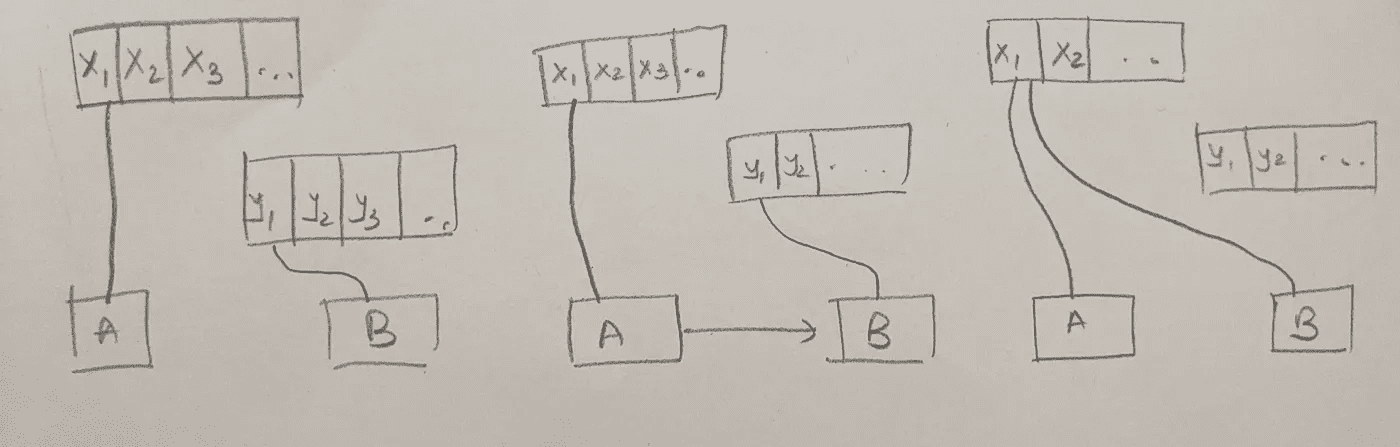 x₁ x₂ x₃ ...
y₁ y₂ y₃ ..
A B
x₁ x₂ x₃ ..
y₁ y₂ . ..
A B
x₁ x₂ ..
y₁ y₂ ...
A B